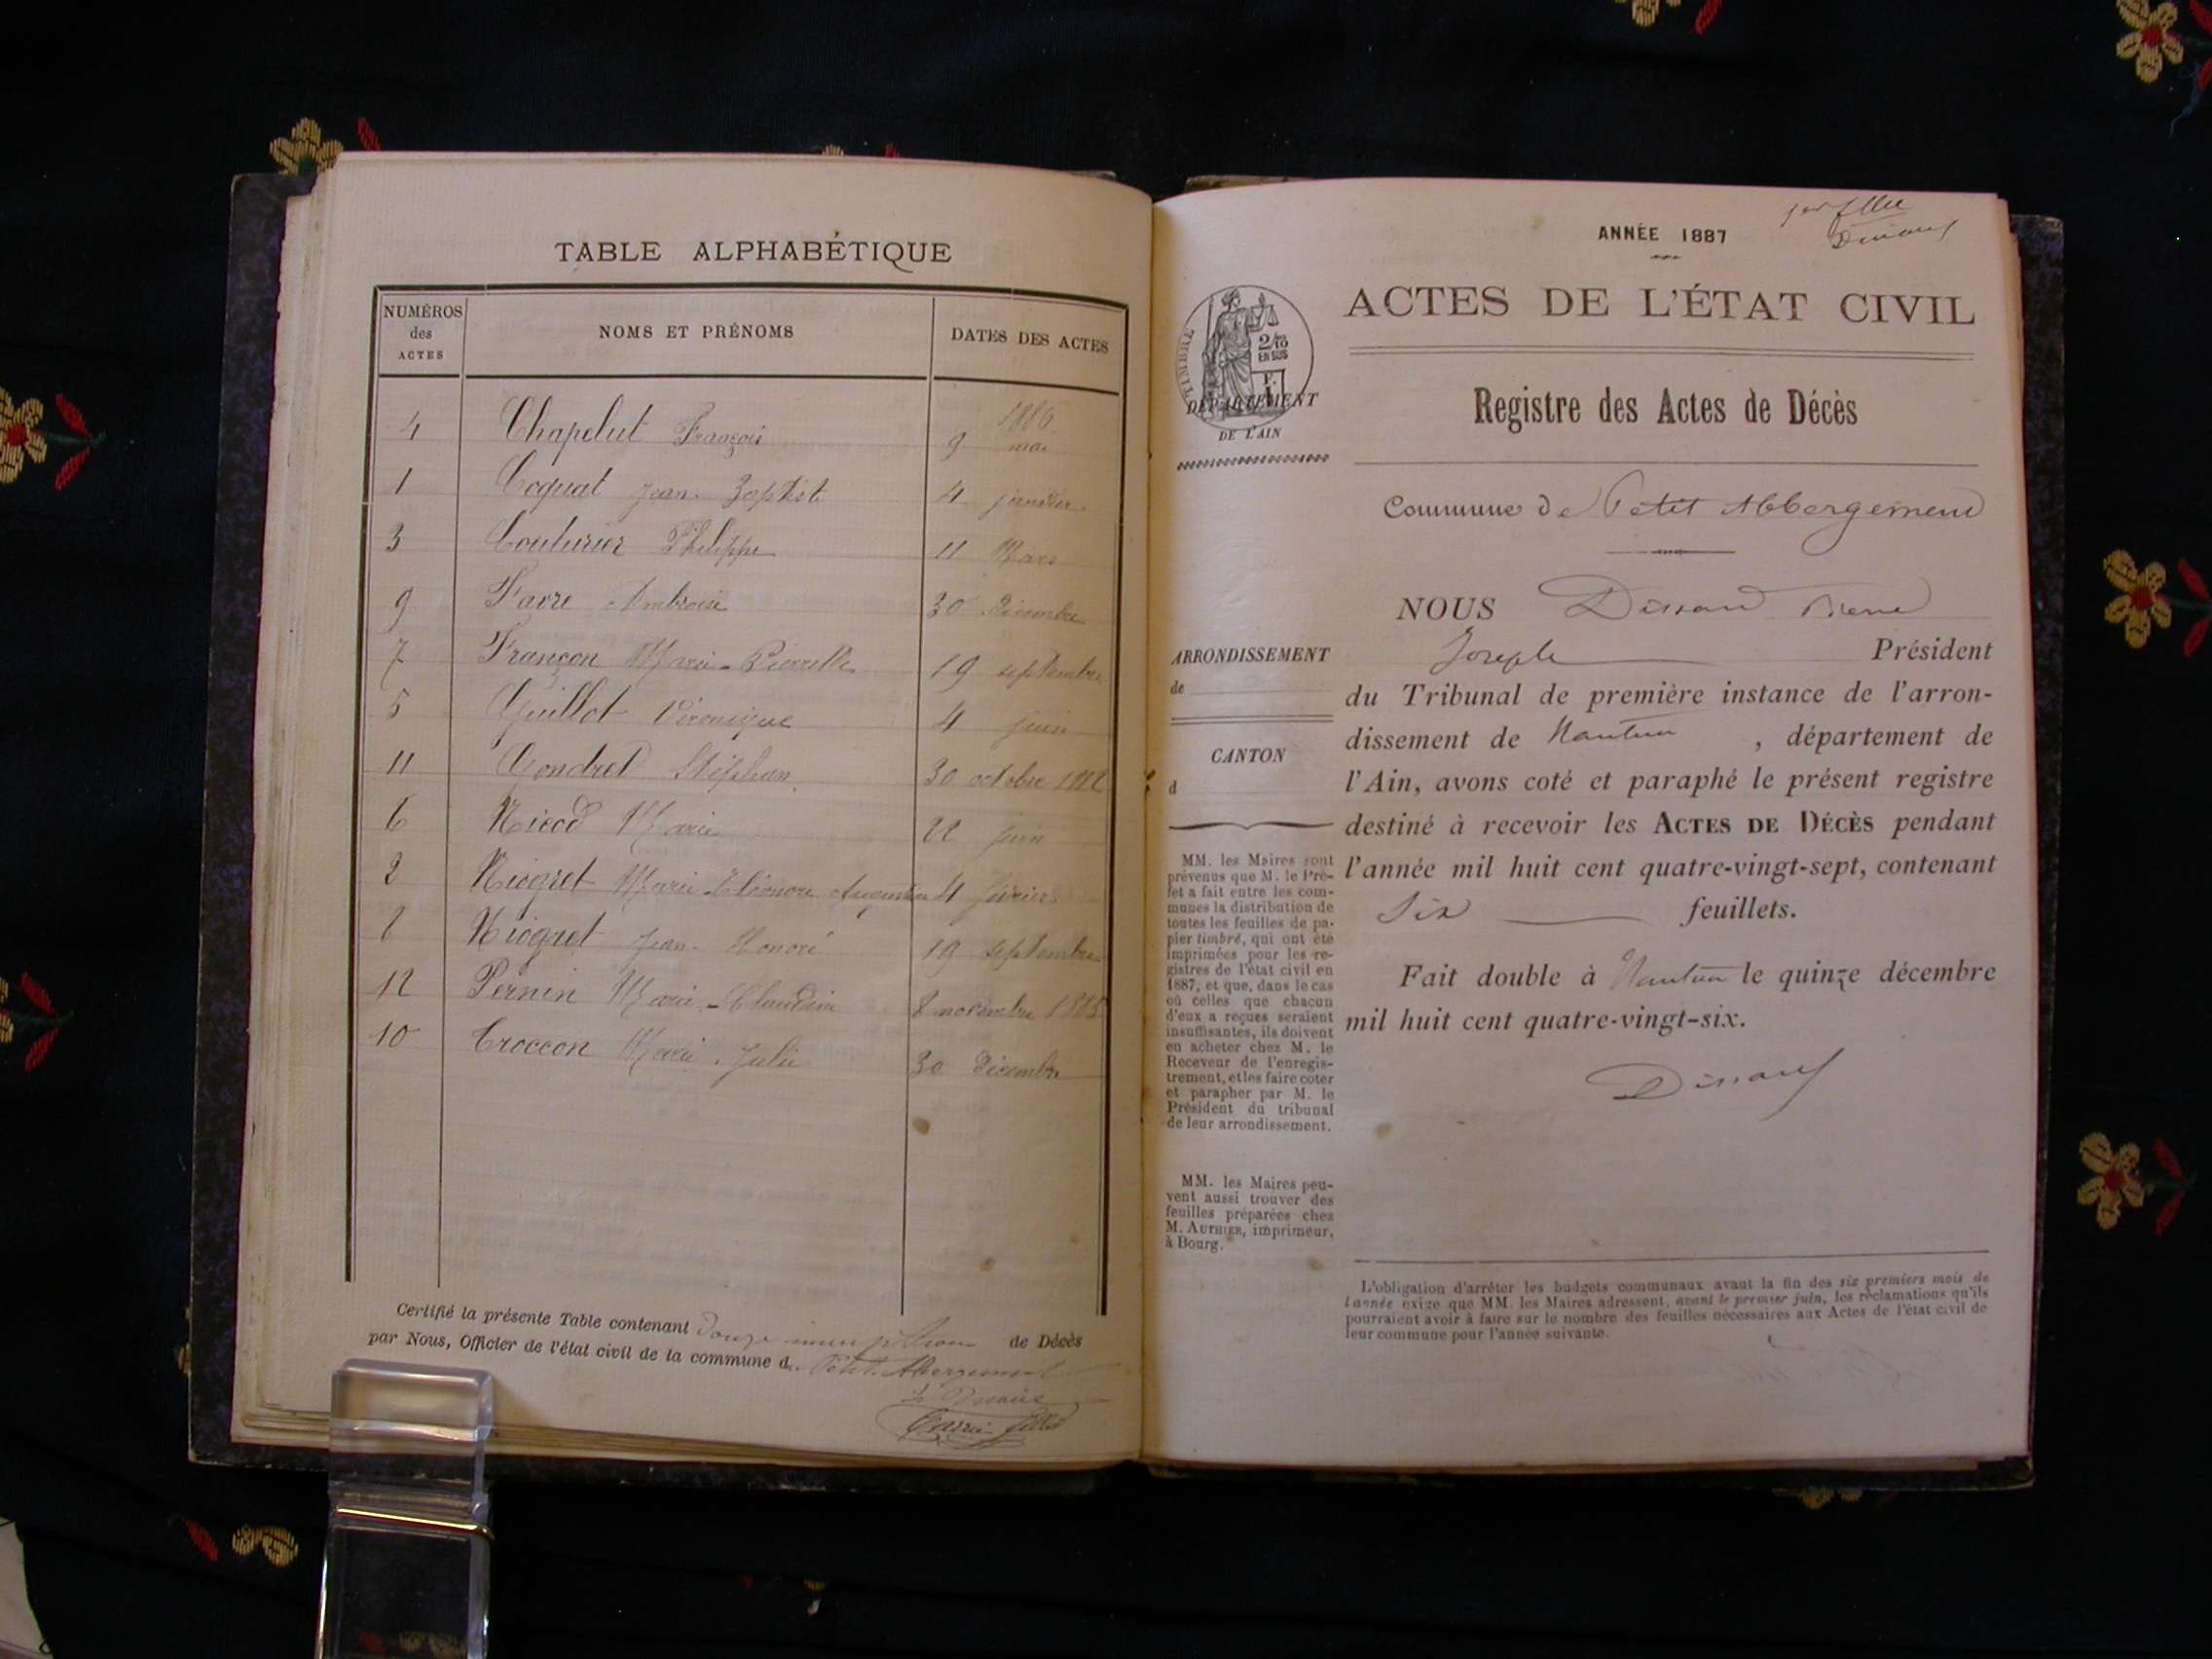 TABLE ALPHABÉTIQUE
NUMÉROS des ACTES
NOMS ET PRÉNOMS
DATES DES ACTES
1886
4 Chapelut François 9 mai
1 Coquat Jean-Baptiste 4 janvier
3 Couturier Philippe 11 Mars
9 Favre Ambroise 30 Décembre
7 Françon Marie-Pierrette 19 septembre
5 Guillot Véronique 4 juin
11 Gondret Stéphan 30 octobre
6 Nicod Marie 22 juin
2 Niogret Marie-Eléonore 4 février
8 Niogret Jean-Honoré 19 septembre
12 Pernin Marie-Claudine 8 novembre
10 Troccon Marie-Julie 30 Décembre
Certifié la présente Table contenant douze inscriptions de Décès
par Nous, Officier de l'état civil de la commune d Petit-Abergement
ANNÉE 1887
ACTES DE L'ÉTAT CIVIL
TIMBRE
2/10
EN SUS
DÉPARTEMENT
DE L'AIN
Registre des Actes de Décès
Commune de Petit Abbergement
NOUS Dissard Pierre
Joseph Président
du Tribunal de première instance de l'arron-
dissement de Nantua , département de
l'Ain, avons coté et paraphé le présent registre
destiné à recevoir les ACTES DE DÉCÈS pendant
l'année mil huit cent quatre-vingt-sept, contenant
Six feuillets.
Fait double à Nantua le quinze décembre
mil huit cent quatre-vingt-six.
Dissard
ARRONDISSEMENT
de
CANTON
d
MM. les Maires sont
prévenus que M. le Pré-
fet a fait entre les com-
munes la distribution de
toutes les feuilles de pa-
pier timbré, qui ont été
imprimées pour les re-
gistres de l'état civil en
1887, et que, dans le cas
où celles que chacun
d'eux a reçues seraient
insuffisantes, ils doivent
en acheter chez M. le
Receveur de l'enregis-
trement, et les faire coter
et parapher par M. le
Président du tribunal
de leur arrondissement.
MM. les Maires peu-
vent aussi trouver des
feuilles préparées chez
M. AUTHIER, imprimeur,
à Bourg.
L'obligation d'arrêter les budgets communaux avant la fin des six premiers mois de
l'année exige que MM. les Maires adressent, avant le premier juin, les réclamations qu'ils
pourraient avoir à faire sur le nombre des feuilles nécessaires aux Actes de l'état civil de
leur commune pour l'année suivante.